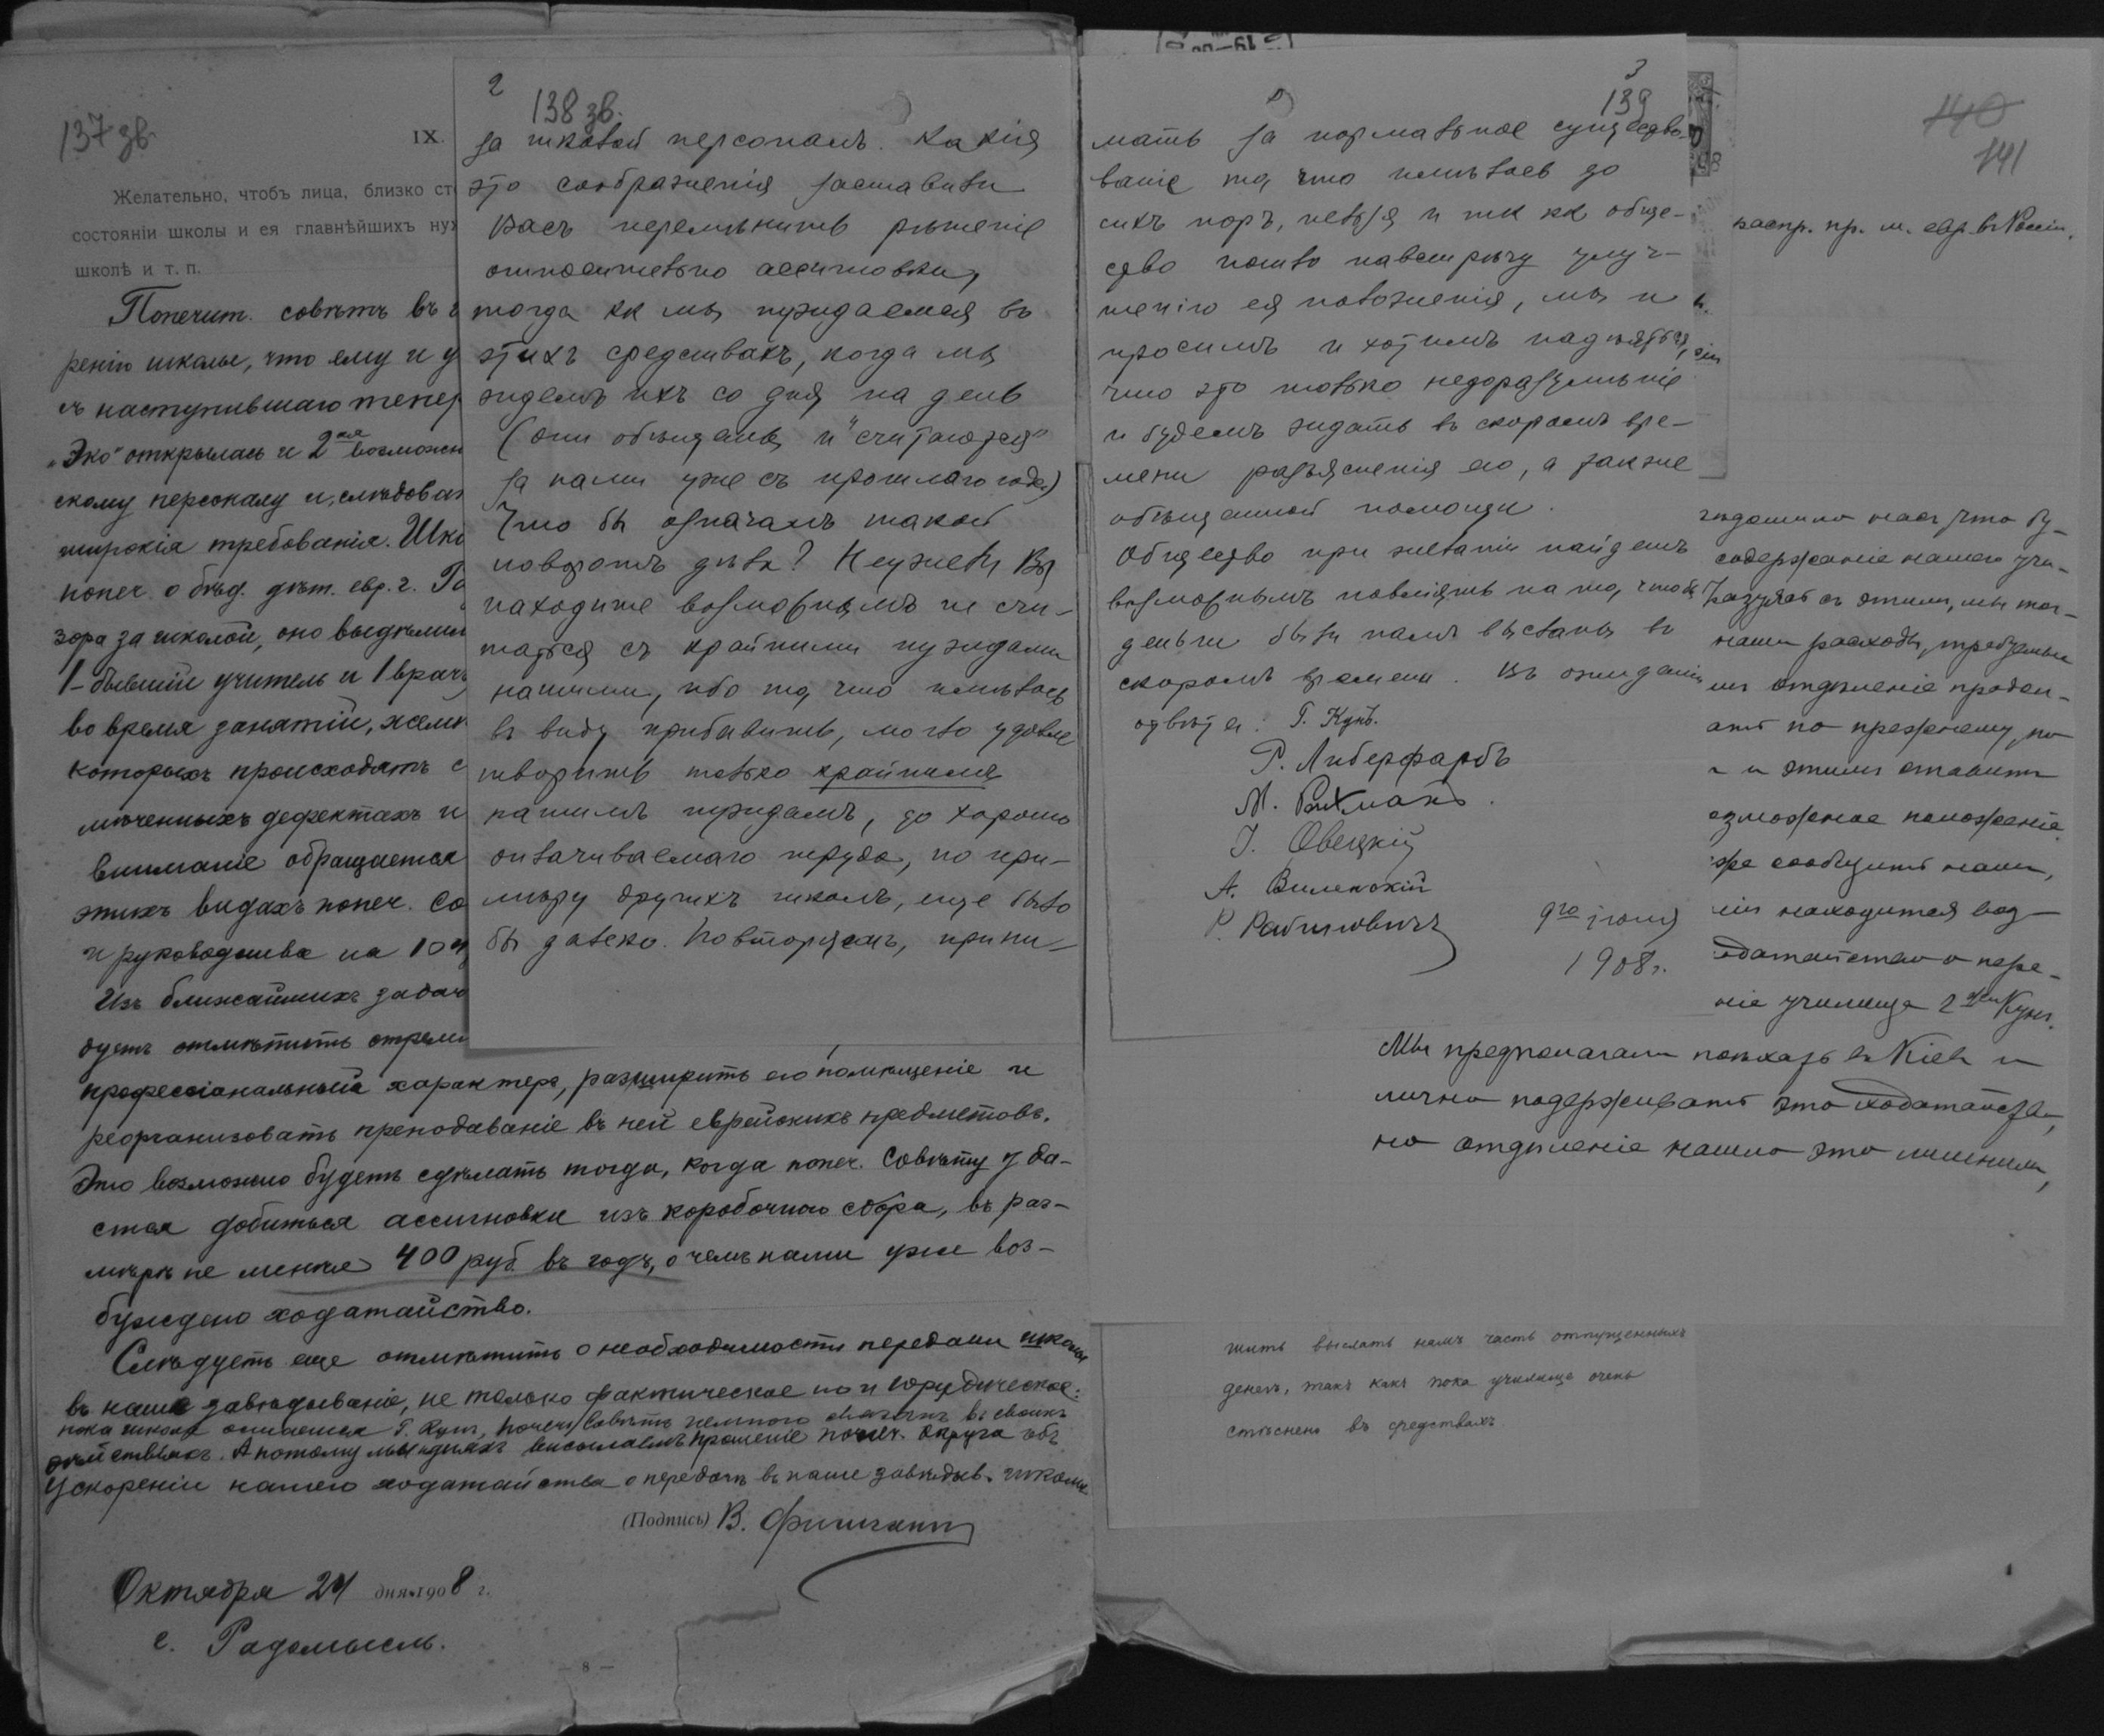 137 зв.
IX.
Желательно, чтобъ лица, близко ст
состояніи школы и ея главнѣйшихъ ну
школѣ и т. п.
Попечит. совѣтъ въ
ренію школы, что ему и у
съ наступившаго тепер
„Эко" открылась и 2ая возможн
скому персоналу и, слѣдоват
широкія требованія. Шко
попеч. о бѣд. дѣт. евр. г.
зора за школой, оно выдѣлил
1 - бывшій учитель и 1 врачъ
во время занятій,
которыхъ происходятъ с
мѣченныхъ дефектахъ и
вниманіе обращается
этихъ видахъ попеч. Со
и руководства на 10
Изъ ближайшихъ задач
дуетъ отмѣтить стремл
профессіональный характеръ, разширить его помѣщеніе и
реорганизовать преподаваніе въ ней еврейскихъ предметовъ.
Это возможно будетъ сдѣлать тогда, когда попеч. Совѣту уда-
стся добиться ассигновки изъ коробочнаго сбора, въ раз-
мѣрѣ не менѣе 400 руб. въ годъ, о чемъ нами уже воз-
буждено ходатайство.
Слѣдуетъ еще отмѣтить о необходимости передачи школы
въ наше завѣдываніе, не только фактическое но и юридическое:
пока школа Г. Кунъ, попеч. Совѣтъ немного въ своихъ
дѣйствіяхъ. А потому мы высылаемъ прошеніе попеч. округа объ
ускореніи нашего ходатайства о передачѣ въ наше завѣдыв. школы
(Подпись) В. Фишманъ
Октября 24 дня 1908 г.
с. Радомысль.
— 8 —
2
138 зв.
за шковой персоналъ. Какія
это соображенія заставили
Васъ перемѣнить рѣшеніе
относительно ассигновки,
тогда кк мы нуждаемся въ
этихъ средствахъ, когда мы
ждемъ ихъ со дня на день
(они обѣщаны и "считаются"
за нами уже съ прошлаго года)
Что бы означалъ такой
поворотъ дѣла? Неужели Вы
находите возможнымъ не счи-
таться съ крайними нуждами
нашими, ибо то, что имѣлось
въ виду прибавить, могло удовле
творить только крайнимъ
нашимъ нуждамъ, до хорошо
оплачиваемаго труда, по при-
мѣру другихъ школъ, еще было
бы далеко. Повторяемъ, прини-
3
139
мать за нормальное существо-
ваніе то, что имѣлось до
сихъ поръ, нельзя и тк кк обще-
ство пошло навстрѣчу улуч-
шенію ея положенія, мы и
просимъ и хотимъ надѣяться,
что это только недоразумѣніе
и будемъ ждать въ скоромъ вре-
мени разъясненія его, а также
обѣщанной помощи.
Общество при желаніи найдетъ
возможнымъ повліять на то, чтобы
деньги были намъ высланы въ
скоромъ времени. Въ ожиданіи
отвѣта: Г. Кунъ.
Р. Либерфарбъ
М. Рихманъ.
І. Овецкій
А. Виленскій
Р. Рабиновичъ
9го іюля
1908 г.
140
141
распр. пр. м. евр. въ Россіи.
что бу-
содержаніе нашего учи-
съ этимъ, мы
наши расходы, требуемые
отдѣленіе продол-
по прежнему, но
и этимъ ставитъ
положеніе
же сообщитъ намъ,
находится
о пере-
ніе училища 2 Кунъ.
Мы предполагали поѣхать въ Кіевъ и
лично это ходатайство,
но отдѣленіе нашло это лишнимъ,
жить выслать намъ часть отпущенныхъ
денегъ, такъ какъ пока училище очень
стѣснено въ средствахъ.